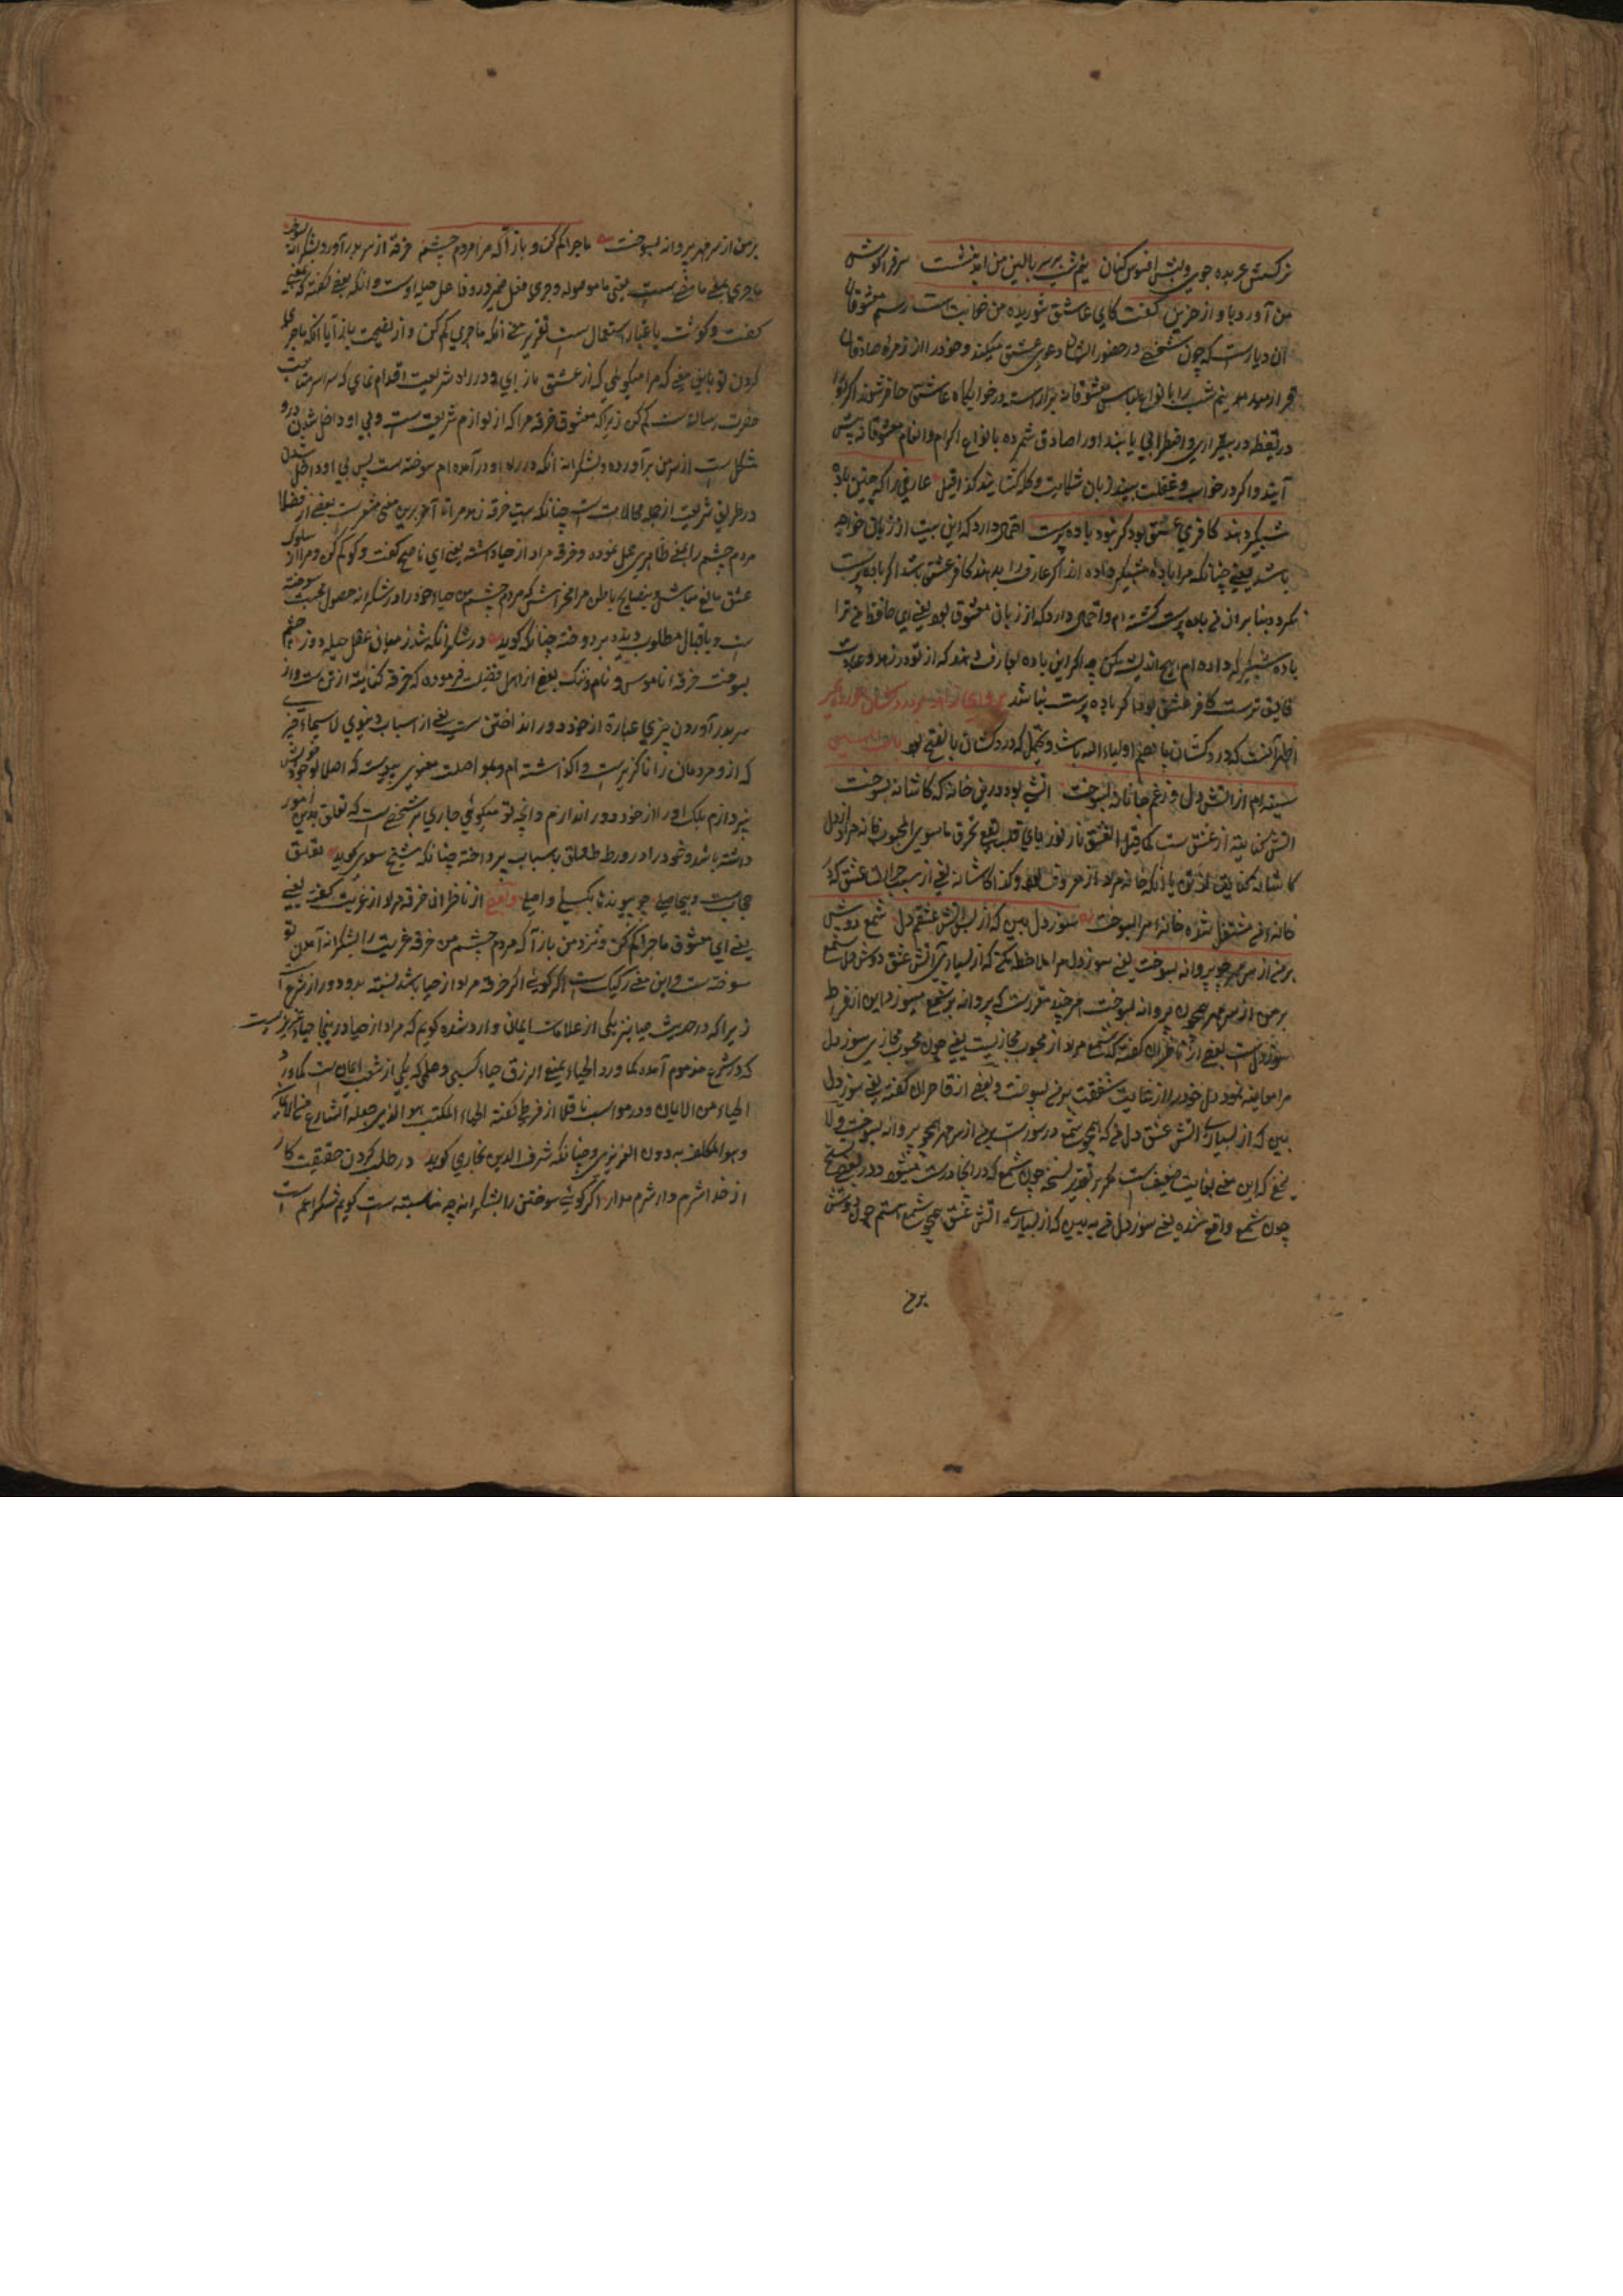 نرکسش عربده جوی و لبش افسوس کنان نیم شب بر سر بالین من امد بنشست سر فرا کوش
من آورد باواز حزین کفت کای عاشق شوریده من خوابت است رسم معشوقان
آن دیارست که چون شخصی در حضور ایشان دعوی عشق میکند و خود را از زمره صادقان
نیم شب را بانواع لباس معشوقانه آراسته در خوابکاه عاشق حاضر شوند اکر او را
در تیقظ و بیقراری و اضطرابی یابند او را صادق شمرده بانواع اکرام و انعام معشوقانه پیش
آیند و اکر در خواب و غفلت بینند زبان شکایت و کله کشایند کذا قیل عارفی را که چنین باده
شبکیر دهند کافر عشق بود کر نبود باده پرست احتمال دارد که این بیت از زبان خواجه
باشد یعنی چنانکه مرا باده شبکیر داده اند اکر عارف را بدهند کافر عشق باشد اکر باده پرست
نکردد بنابران من باده پرست کشته ام و احتمال دارد که از زبان معشوق بود یعنی ای حافظ من ترا
باده شبکیر که داده ام هیچ اندیشه مکن چه اکر این باده بعارف دهند که از تو در زهد و عبادت
فایق ترست کافر عشق بود اکر باده پرست نباشد برو ای زاهد و بر دردکشان خرده مکیر
اظهر آنست که دردکشان اولیاء الله باشد و که دردکشان بالفتح بود
سینه ام از آتش دل در غم جانانه بسوخت آتشی بود درین خانه که کاشانه بسوخت
آتش کنایت از عشق ست کما قیل العشق نار تقع فی القلب تحرق ما سوی المحبوب خانه مراد از دل
کاشانه کنایت از تن یا آنکه خانه مراد از معروف بود و کذا کاشانه یعنی از سبب حرارت عشق که در
خانه من مشتعل شده خانه مرا بسوخت سوز دل بین که ز بس آتش عشقم دل شمع دوش
بر من از سر مهر چو پروانه بسوخت یعنی سوز دل مرا ملاحظه بکن که از بسیاری آتش عشق دوش دل شمع
بر من از سر مهر همچون پروانه بسوخت هر چند مقررست که پروانه بر شمع میسوزد این از فرط
سوز دل است بعضی از ناظران کفته که شمع مراد از محبوب مجازیست یعنی چون محبوب مجازی سوز دل
مرا معاینه نمود دل خود را از غایت شفقت بر من بسوخت و بعضی از قاصران کفته یعنی سوز دل
بین که از بسیاری آتش عشق دل من که همچو شمع در سوزست بر من از سر مهر همچو پروانه بسوخت ولا
یخفی که این معنی بغایت ضعیف است مکر بر تقدیر نسخه چون شمع که در انجا درست میشود و در بعضی نسخ
چون شمع واقع شده یعنی سوز دل من ببین که از بسیاری آتش عشق همچو شمع هستم چون دوش
بر من
بر من از سر مهر پروانه بسوخت ماجرا کم کن و باز آ که مرا مردم چشم خرقه از سر بدر آورد و بشکرانه بسوخت
کفت و کوست باعتبار استعمال ست تقریر معنی آنکه ماجرا کم کن و از نصیحت باز آ یا آنکه ماجرا
کردن تو باین معنی که مرا میکوئی که از عشق باز آی و در راه شریعت اقدام نمای که سراسر متابعت
حضرت رسالت ست کم کن زیرا که معشوق خرقه مرا که از لوازم شریعت ست و بی او داخل شدن درو
مشکل ست از سر من برآورده و بشکرانه آنکه در راه او درآمده ام سوخته ست پس بی او داخل شدن
در طریق شریعت از جمله محالات ست چنانکه بیت خرقه زهد مرا تا آخر برین معنی مشعرست بعضی از فضلا
مردم چشم را بمعنی ظاهری حمل نموده و خرقه مراد از حیا داشته یعنی ای ناصح کفت و کو کم کن و مرا از سلوک
عشق مانع مباش و بنصایح باطن مرا مخراش که مردم چشم من حیاء خود را در شکرانه حصول محبت سوخته
ست و باقبال مطلوب دیده بر دوخته چنانکه کوید در شکر آنکه شد ز میان عقل حیله دوز چشم
بسوخت خرقه ناموس و نام و ننک بعضی از اهل فضیلت فرموده که خرقه کنایت از تن ست و از
سر بدر آوردن چیزی عبارة از خود دور انداختن ست یعنی از اسباب دنیوی لا سیما چیزی
که از و مردمان را ناکزیرست واکذاشته ام و بمواصلت معنوی پیوست که اصلا بوجود خویش
نپردازم بلکه او را از خود دور اندازم و انچه تو میکوئی جاری بر شخصی ست که تعلق بدین امور
داشته باشد و خود را در ورطه علایق باسباب پرداخته چنانکه شیخ سعدی کوید تعلق
حجابست و بیحاصلی چو پیوندها بکسلی واصلی و بعضی از ناظران خرقه مراد از غربت کفته یعنی
یعنی ای معشوق ماجرا کم کن و نزد من باز آ که مردم چشم من خرقه غربت را بشکرانه آمدن تو
سوخته ست و این معنی رکیک ست اکر کوئی اکر خرقه مراد از حیا باشد نسبته بدو دور از شرع است
زیرا که در حدیث حیا نیز یکی از علامات ایمان وارد شده کویم که مراد از حیا درینجا حیاء غریزیست
که در شرع مذموم آمده کما ورد الحیاء یمنع الرزق حیاء کسبی و عملی که یکی از شعب ایمان ست کما ورد
الحیاء من الایمان و در مواهب ناقلا از قرطبی کفته الحیاء المکتسب هو الذی جعله الشارع من الایمان
وهو المکلف به دون الغریزی و چنانکه شرف الدین بخاری کوید در طلب کردن حقیقت کار
از خدا شرم دار و شرم مدار اکر کوئی سوختن را بشکرانه چه مناسبت ست کویم شکر اعم است